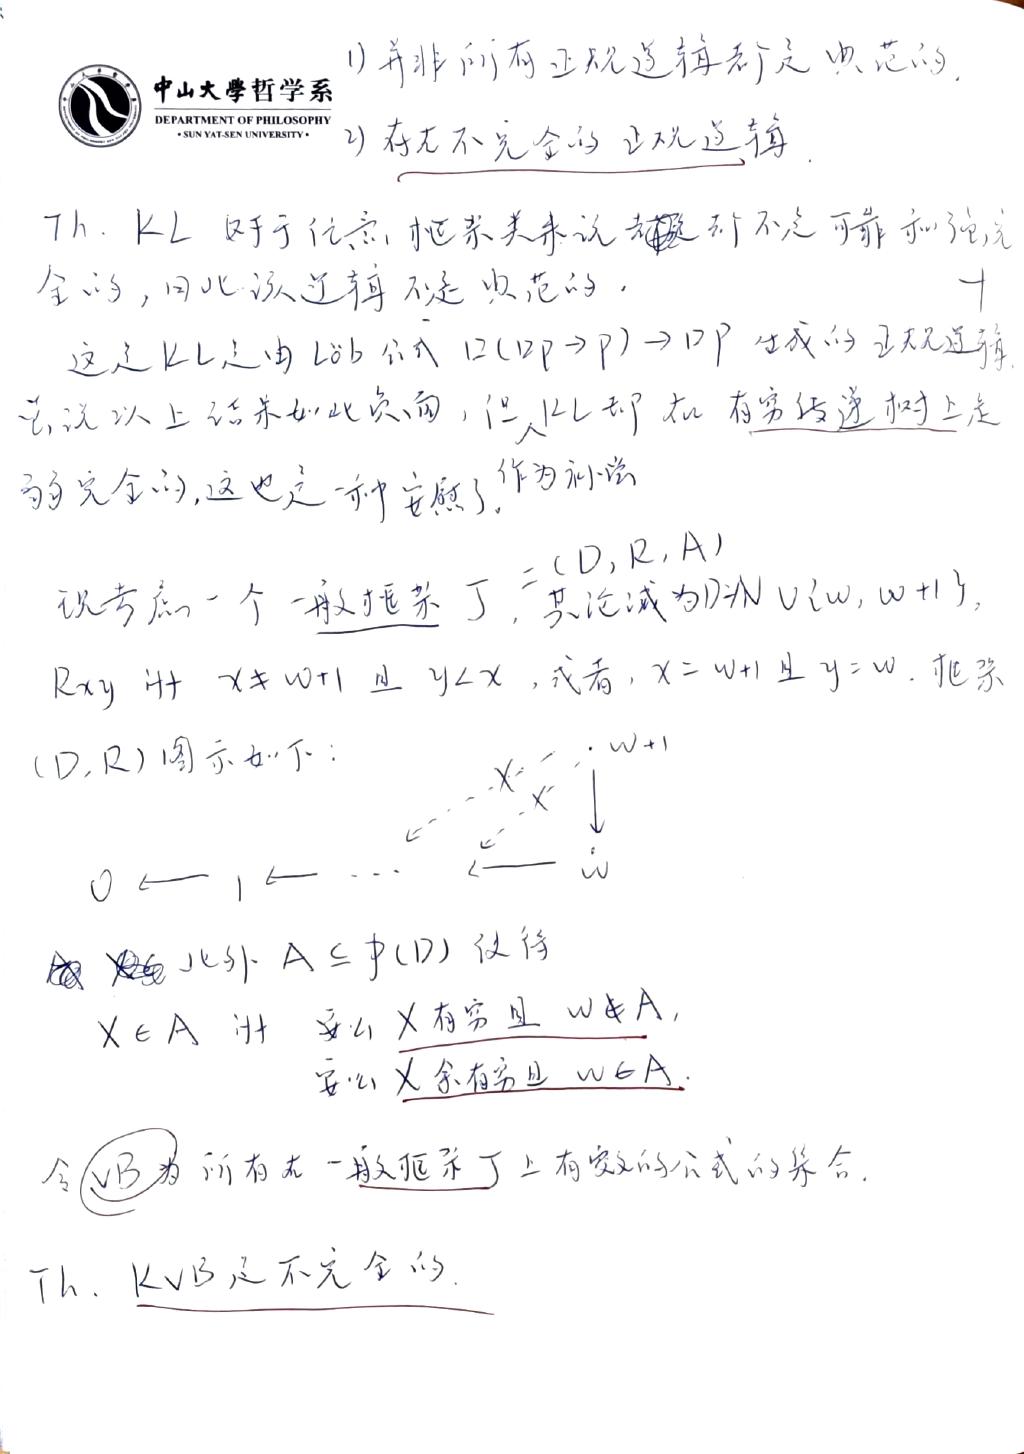 中山大學哲学系
DEPARTMENT OF PHILOSOPHY
• SUN YAT-SEN UNIVERSITY •
1) 并非所有正规逻辑都是典范的.
2) 存在不完全的正规逻辑.
Th. KL 对于任意框架类来说都不是可靠和强完
全的，因此该逻辑不是典范的.
这里KL是由Löb公式 □(□p→p)→□p 生成的正规逻辑.
虽说以上结果如此负面，但KL却在有穷传递树上是
弱完全的,这也是一种安慰了.
作为补偿
现考虑一个一般框架 J = (D, R, A)
, 其论域为D=N∪{w, w+1},
Rxy iff x≠w+1 且 y<x , 或者, x=w+1 且 y=w. 框架
(D, R) 图示如下:
w+1
X
X
0 ← 1 ← ... ← w
此外 A ⊆ P(D) 使得
X∈A iff 要么 X有穷且 w∉A,
要么 X余有穷且 w∈A.
令 VB 为所有在一般框架 J 上有效的公式的集合.
Th. KVB是不完全的.